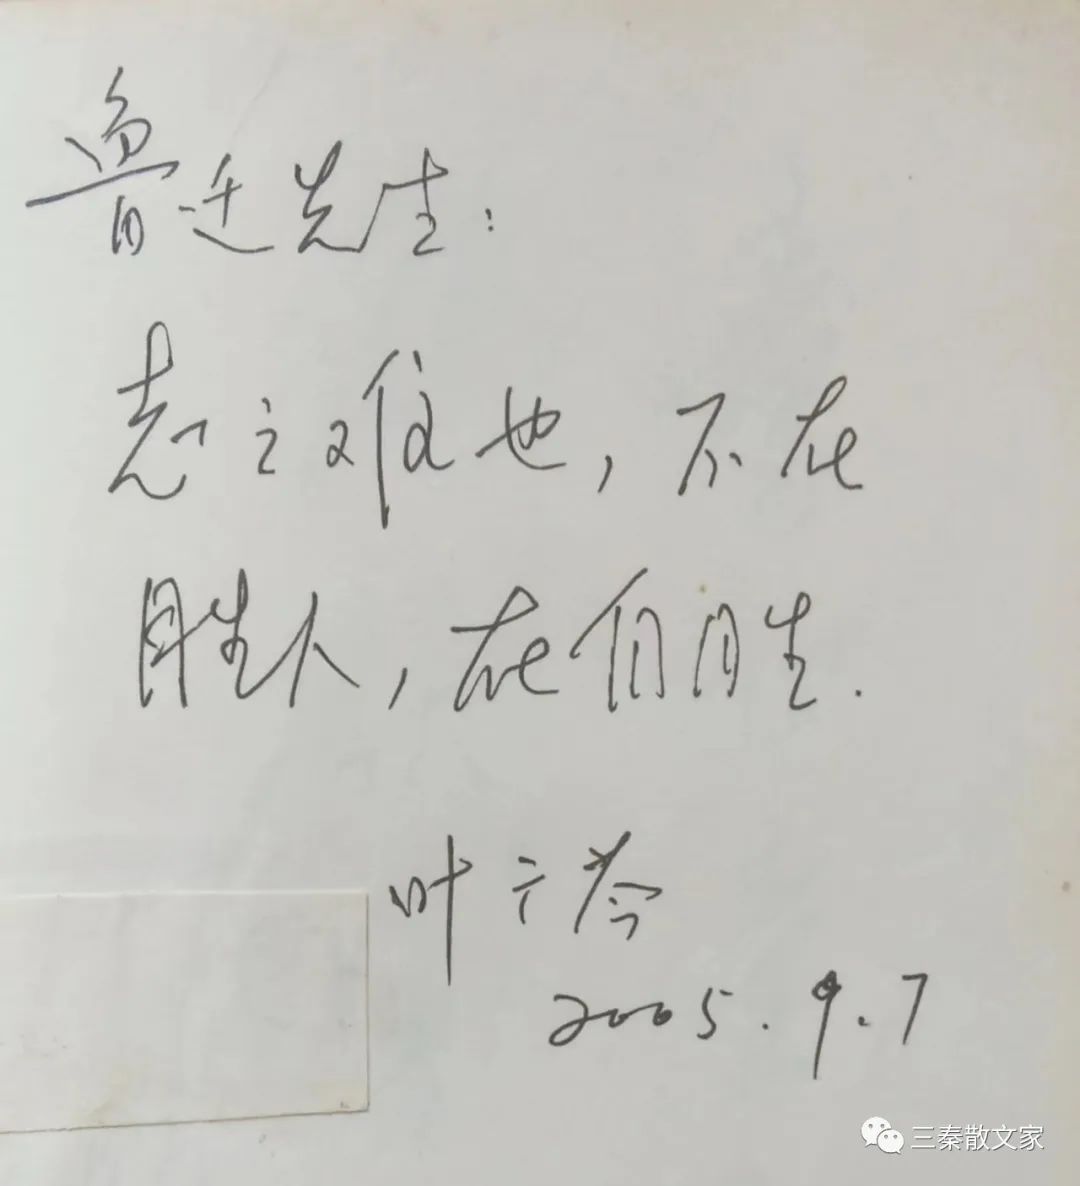 鲁迁先生：
志之难也，不在
胜人，在自胜.
叶广芩
2005.9.7
三秦散文家